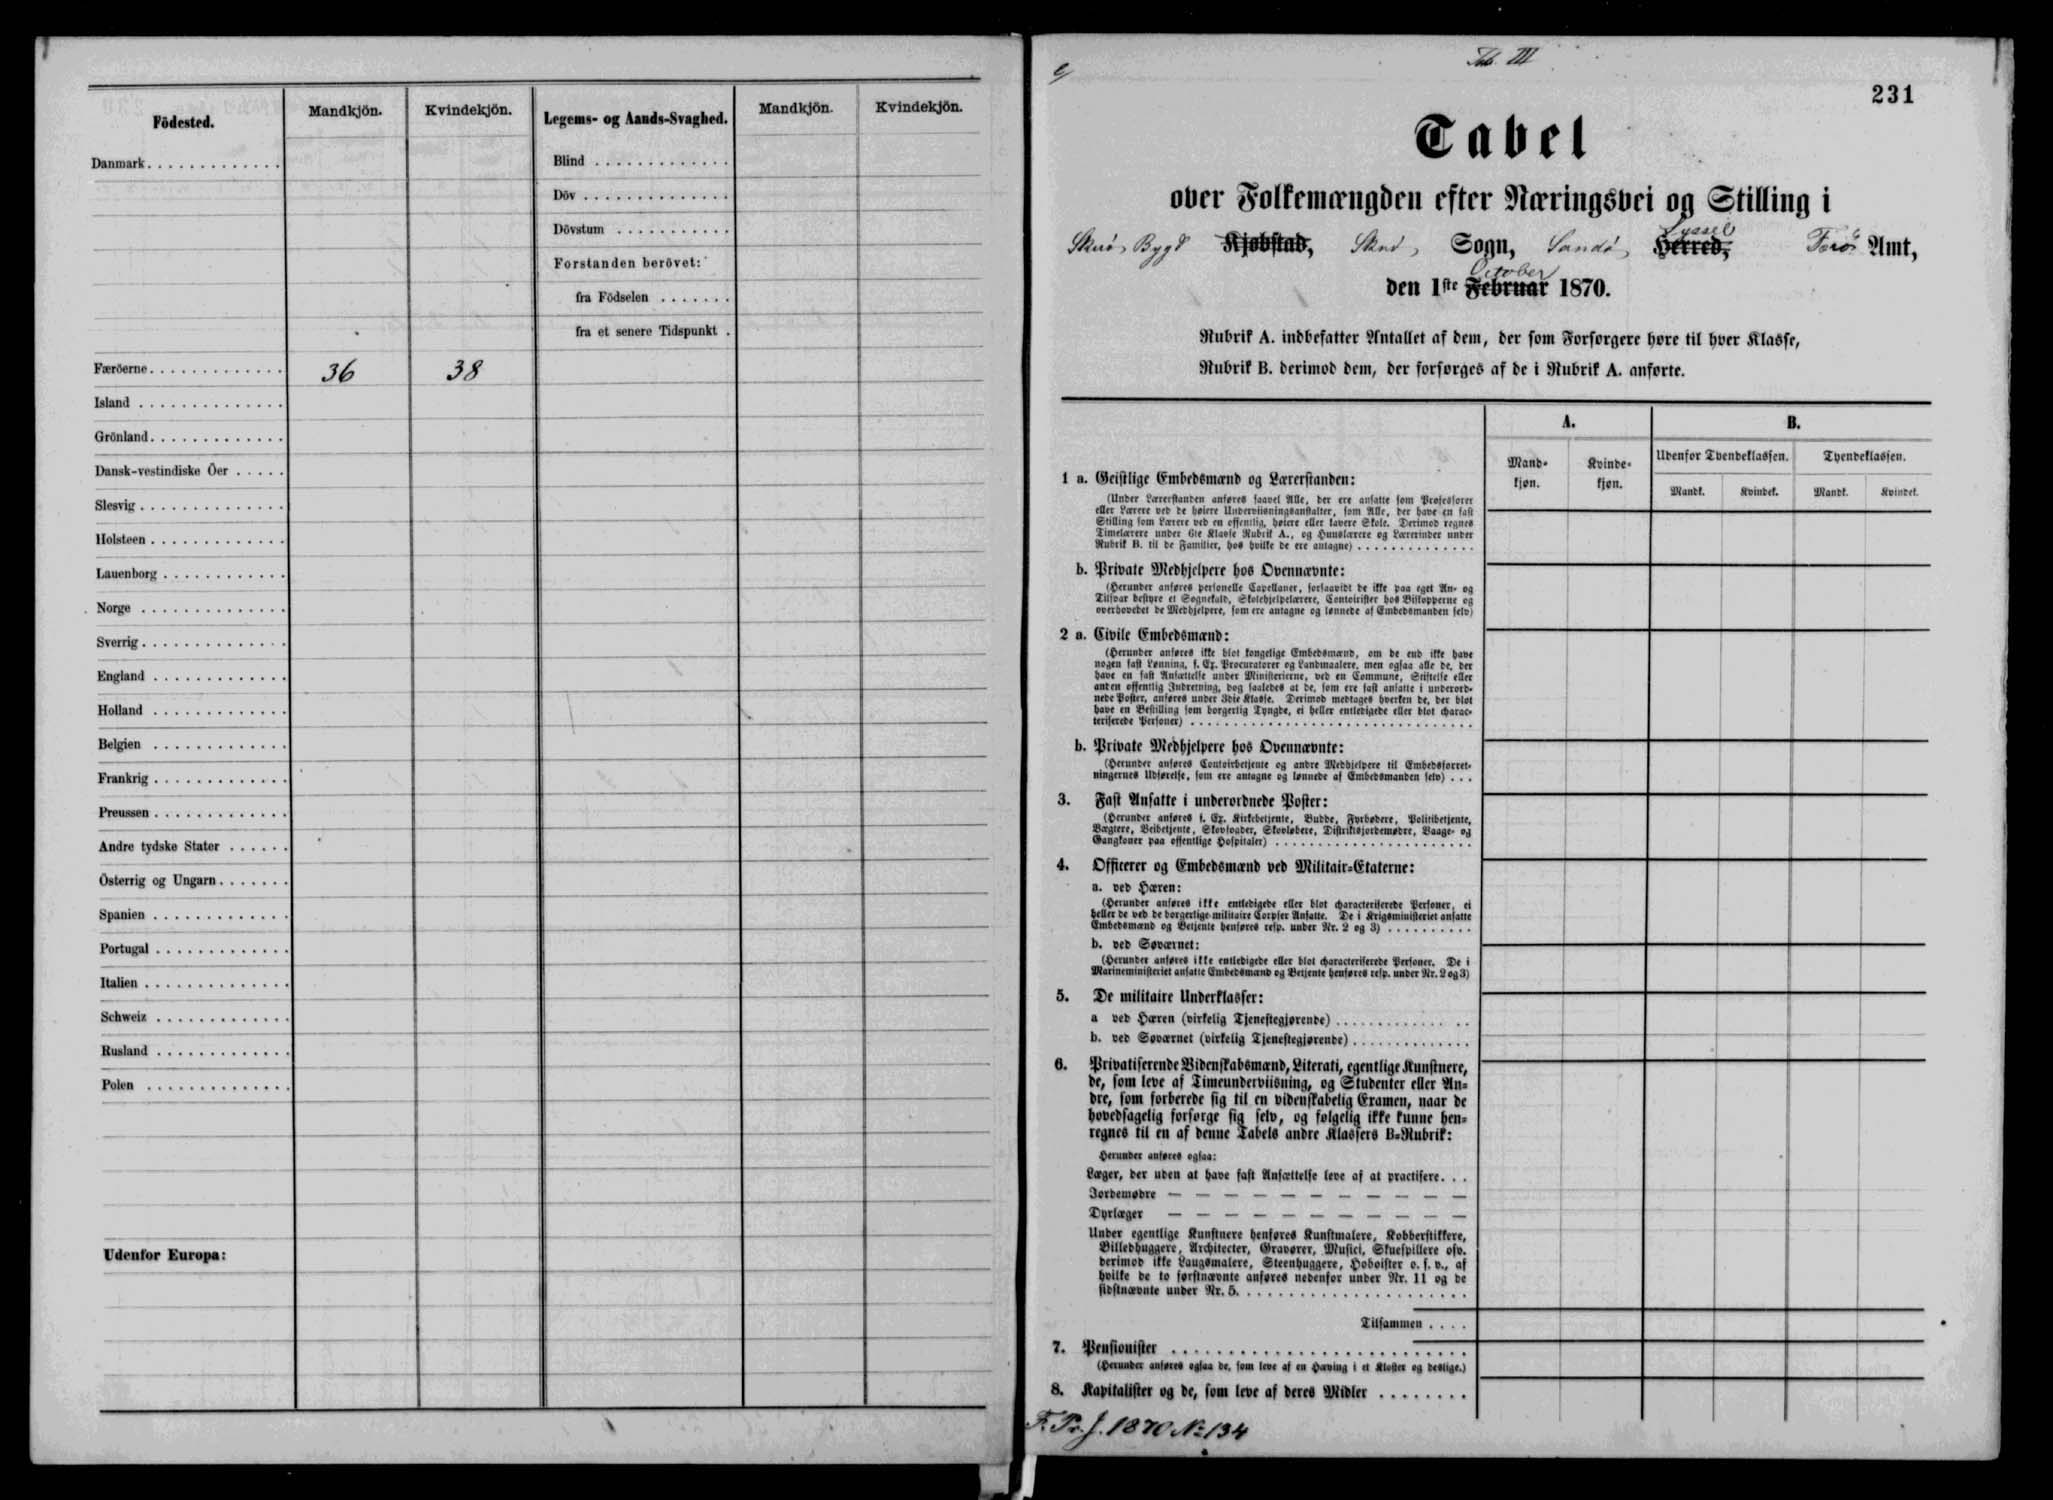 Födested.
Mandkjön.
Kvindekjön.
Legems- og Aands-Svaghed.
Mandkjön.
Kvindekjön.
Danmark . . . . . . . . . . . . .
Færöerne . . . . . . . . . . . . . 36 38
Island . . . . . . . . . . . . . .
Grönland . . . . . . . . . . . . .
Dansk-vestindiske Öer . . . . .
Slesvig . . . . . . . . . . . . . .
Holsteen . . . . . . . . . . . . .
Lauenborg . . . . . . . . . . . .
Norge . . . . . . . . . . . . . .
Sverrig . . . . . . . . . . . . . .
England . . . . . . . . . . . . .
Holland . . . . . . . . . . . . .
Belgien . . . . . . . . . . . . .
Frankrig . . . . . . . . . . . . .
Preussen . . . . . . . . . . . . .
Andre tydske Stater . . . . . .
Österrig og Ungarn . . . . . . .
Spanien . . . . . . . . . . . . .
Portugal . . . . . . . . . . . . .
Italien . . . . . . . . . . . . . .
Schweiz . . . . . . . . . . . . .
Rusland . . . . . . . . . . . . .
Polen . . . . . . . . . . . . . .
Udenfor Europa:
Blind . . . . . . . . . . . . .
Döv . . . . . . . . . . . . . .
Dövstum . . . . . . . . . . .
Forstanden berövet:
fra Födselen . . . . . . .
fra et senere Tidspunkt .
Tab. III
231
Tabel
over Folkemængden efter Næringsvei og Stilling i
Syssel
Skuö Bygd Kjøbstad, Skuö, Sogn, Sandö, Herred, Færö Amt,
October
den 1ste Februar 1870.
Rubrik A. indbefatter Antallet af dem, der som Forsørgere høre til hver Klasse,
Rubrik B. derimod dem, der forsørges af de i Rubrik A. anførte.
A.
B.
Mand-
kjøn.
Kvinde-
kjøn.
Udenfor Tyendeklassen.
Tyendeklassen.
Mandk.
Kvindek.
Mandk.
Kvindek.
1 a. Geistlige Embedsmænd og Lærerstanden:
(Under Lærerstanden anføres saavel Alle, der ere ansatte som Professorer
eller Lærere ved de høiere Underviisningsanstalter, som Alle, der have en fast
Stilling som Lærere ved en offentlig, høiere eller lavere Skole. Derimod regnes
Timelærere under 6te Klasse Rubrik A., og Huuslærere og Lærerinder under
Rubrik B. til de Familier, hos hvilke de ere antagne) . . . . . . . . . . . . . .
b. Private Medhjelpere hos Ovennævnte:
(Herunder anføres personelle Capellaner, forsaavidt de ikke paa eget An- og
Tilsvar bestyre et Sognekald, Skolehjelpelærere, Contoirister hos Biskopperne og
overhovedet de Medhjelpere, som ere antagne og lønnede af Embedsmanden selv)
2 a. Civile Embedsmænd:
(Herunder anføres ikke blot kongelige Embedsmænd, om de end ikke have
nogen fast Lønning, f. Ex. Procuratorer og Landmaalere, men ogsaa alle de, der
have en fast Ansættelse under Ministerierne, ved en Commune, Stiftelse eller
anden offentlig Indretning, dog saaledes at de, som ere fast ansatte i underord-
nede Poster, anføres under 3die Klasse. Derimod medtages hverken de, der blot
have en Bestilling som borgerlig Tyngde, ei heller entledigede eller blot charac-
teriserede Personer) . . . . . . . . . . . . . . . . . . . . . . . . . . . . . .
b. Private Medhjelpere hos Ovennævnte:
(Herunder anføres Contoirbetjente og andre Medhjelpere til Embedsforret-
ningernes Udførelse, som ere antagne og lønnede af Embedsmanden selv) . . .
3. Fast Ansatte i underordnede Poster:
(Herunder anføres f. Ex. Kirkebetjente, Budde, Fyrbødere, Politibetjente,
Vægtere, Veibetjente, Skovfogder, Skovløbere, Distriktsjordemødre, Vaage- og
Gangkoner paa offentlige Hospitaler) . . . . . . . . . . . . . . . . . . . . . .
4. Officerer og Embedsmænd ved Militair-Etaterne:
a. ved Hæren:
(Herunder anføres ikke entledigede eller blot characteriserede Personer, ei
heller de ved de borgerlige militaire Corpser Ansatte. De i Krigsministeriet ansatte
Embedsmænd og Betjente henføres resp. under Nr. 2 og 3) . . . . . . . . . .
b. ved Søværnet:
(Herunder anføres ikke entledigede eller blot characteriserede Personer. De i
Marineministeriet ansatte Embedsmænd og Betjente henføres resp. under Nr. 2 og 3)
5. De militaire Underklasser:
a ved Hæren (virkelig Tjenestegjørende) . . . . . . . . . . . . . .
b. ved Søværnet (virkelig Tjenestegjørende) . . . . . . . . . . . . .
6. Privatiserende Videnskabsmænd, Literati, egentlige Kunstnere,
de, som leve af Timeunderviisning, og Studenter eller An-
dre, som forberede sig til en videnskabelig Examen, naar de
hovedsagelig forsørge sig selv, og følgelig ikke kunne hen-
regnes til en af denne Tabels andre Klassers B-Rubrik:
Herunder anføres ogsaa:
Læger, der uden at have fast Ansættelse leve af at practisere. . .
Jordemødre — — — — — — — — — — —
Dyrlæger — — — — — — — — — — —
Under egentlige Kunstnere henføres Kunstmalere, Kobberstikkere,
Billedhuggere, Architecter, Gravører, Musici, Skuespillere osv.
derimod ikke Laugsmalere, Steenhuggere, Hoboister o. s. v., af
hvilke de to førstnævnte anføres nedenfor under Nr. 11 og de
sidstnævnte under Nr. 5. . . . . . . . . . . . . . . . . . . . . .
Tilsammen . . . .
7. Pensionister . . . . . . . . . . . . . . . . . . . . . . . . .
(Herunder anføres ogsaa de, som leve af en Hæving i et Kloster og deslige.)
8. Kapitalister og de, som leve af deres Midler . . . . . . . .
F. Pr. J. 1870 No 134